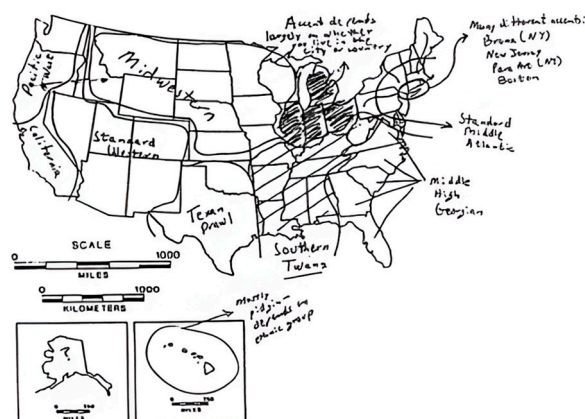 Accent depends
largely on whether
you live in the
city or country
Many different accents:
Bronx (NY)
New Jersey
Boston
Pacific
Midwestern
California
Standard
Western
Standard
Middle
Atlantic
Middle
High
Georgian
Texan
Drawl
Southern
Twang
SCALE
0 1000
MILES
0 1000
KILOMETERS
mostly
pidgin -
depends on
ethnic group
?
0
MILES
0
MILES